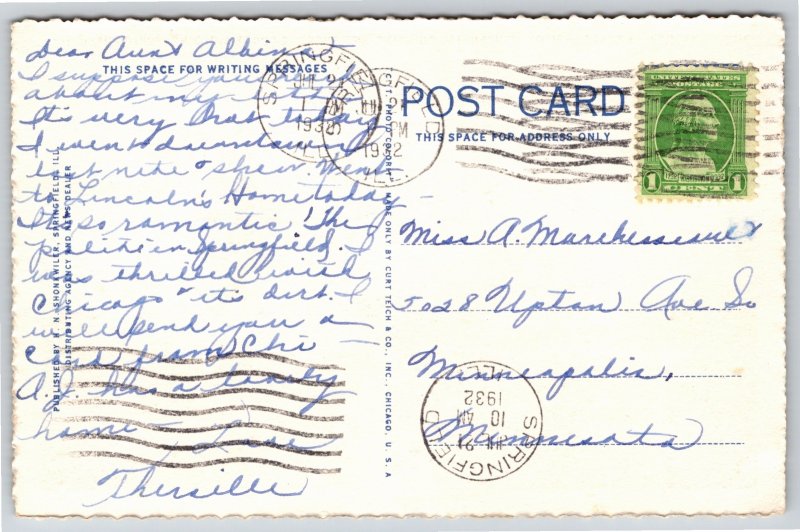 Dear Aunt Albina
THIS SPACE FOR WRITING MESSAGES
I suppose you
about my
It's very hot today
I went downtown
last nite &
to Lincoln's Home today
It's so romantic! The
in Springfield. I
was thrilled with
Chicago & its dirt. I
will send you a
card from Chi
A. J. has a lovely
home
Love
Thersille
PUBLISHED BY R. N. SHONKWILER, SPRINGFIELD, ILL.
DISTRIBUTING AGENCY AND NEWS DEALER
C. T. PHOTO COLORIT MADE ONLY BY CURT TEICH & CO., INC., CHICAGO, U. S. A
SPRINGFIELD
1932
ILL.
SPRINGFIELD
PM
1932
ILL.
POST CARD
THIS SPACE FOR ADDRESS ONLY
UNITED STATES POSTAGE
1 CENT 1
Miss A. Marchessault
5028 Upton Ave So
Minneapolis,
Minnesota
SPRINGFIELD
JUL 21
10 AM
1932
ILL.